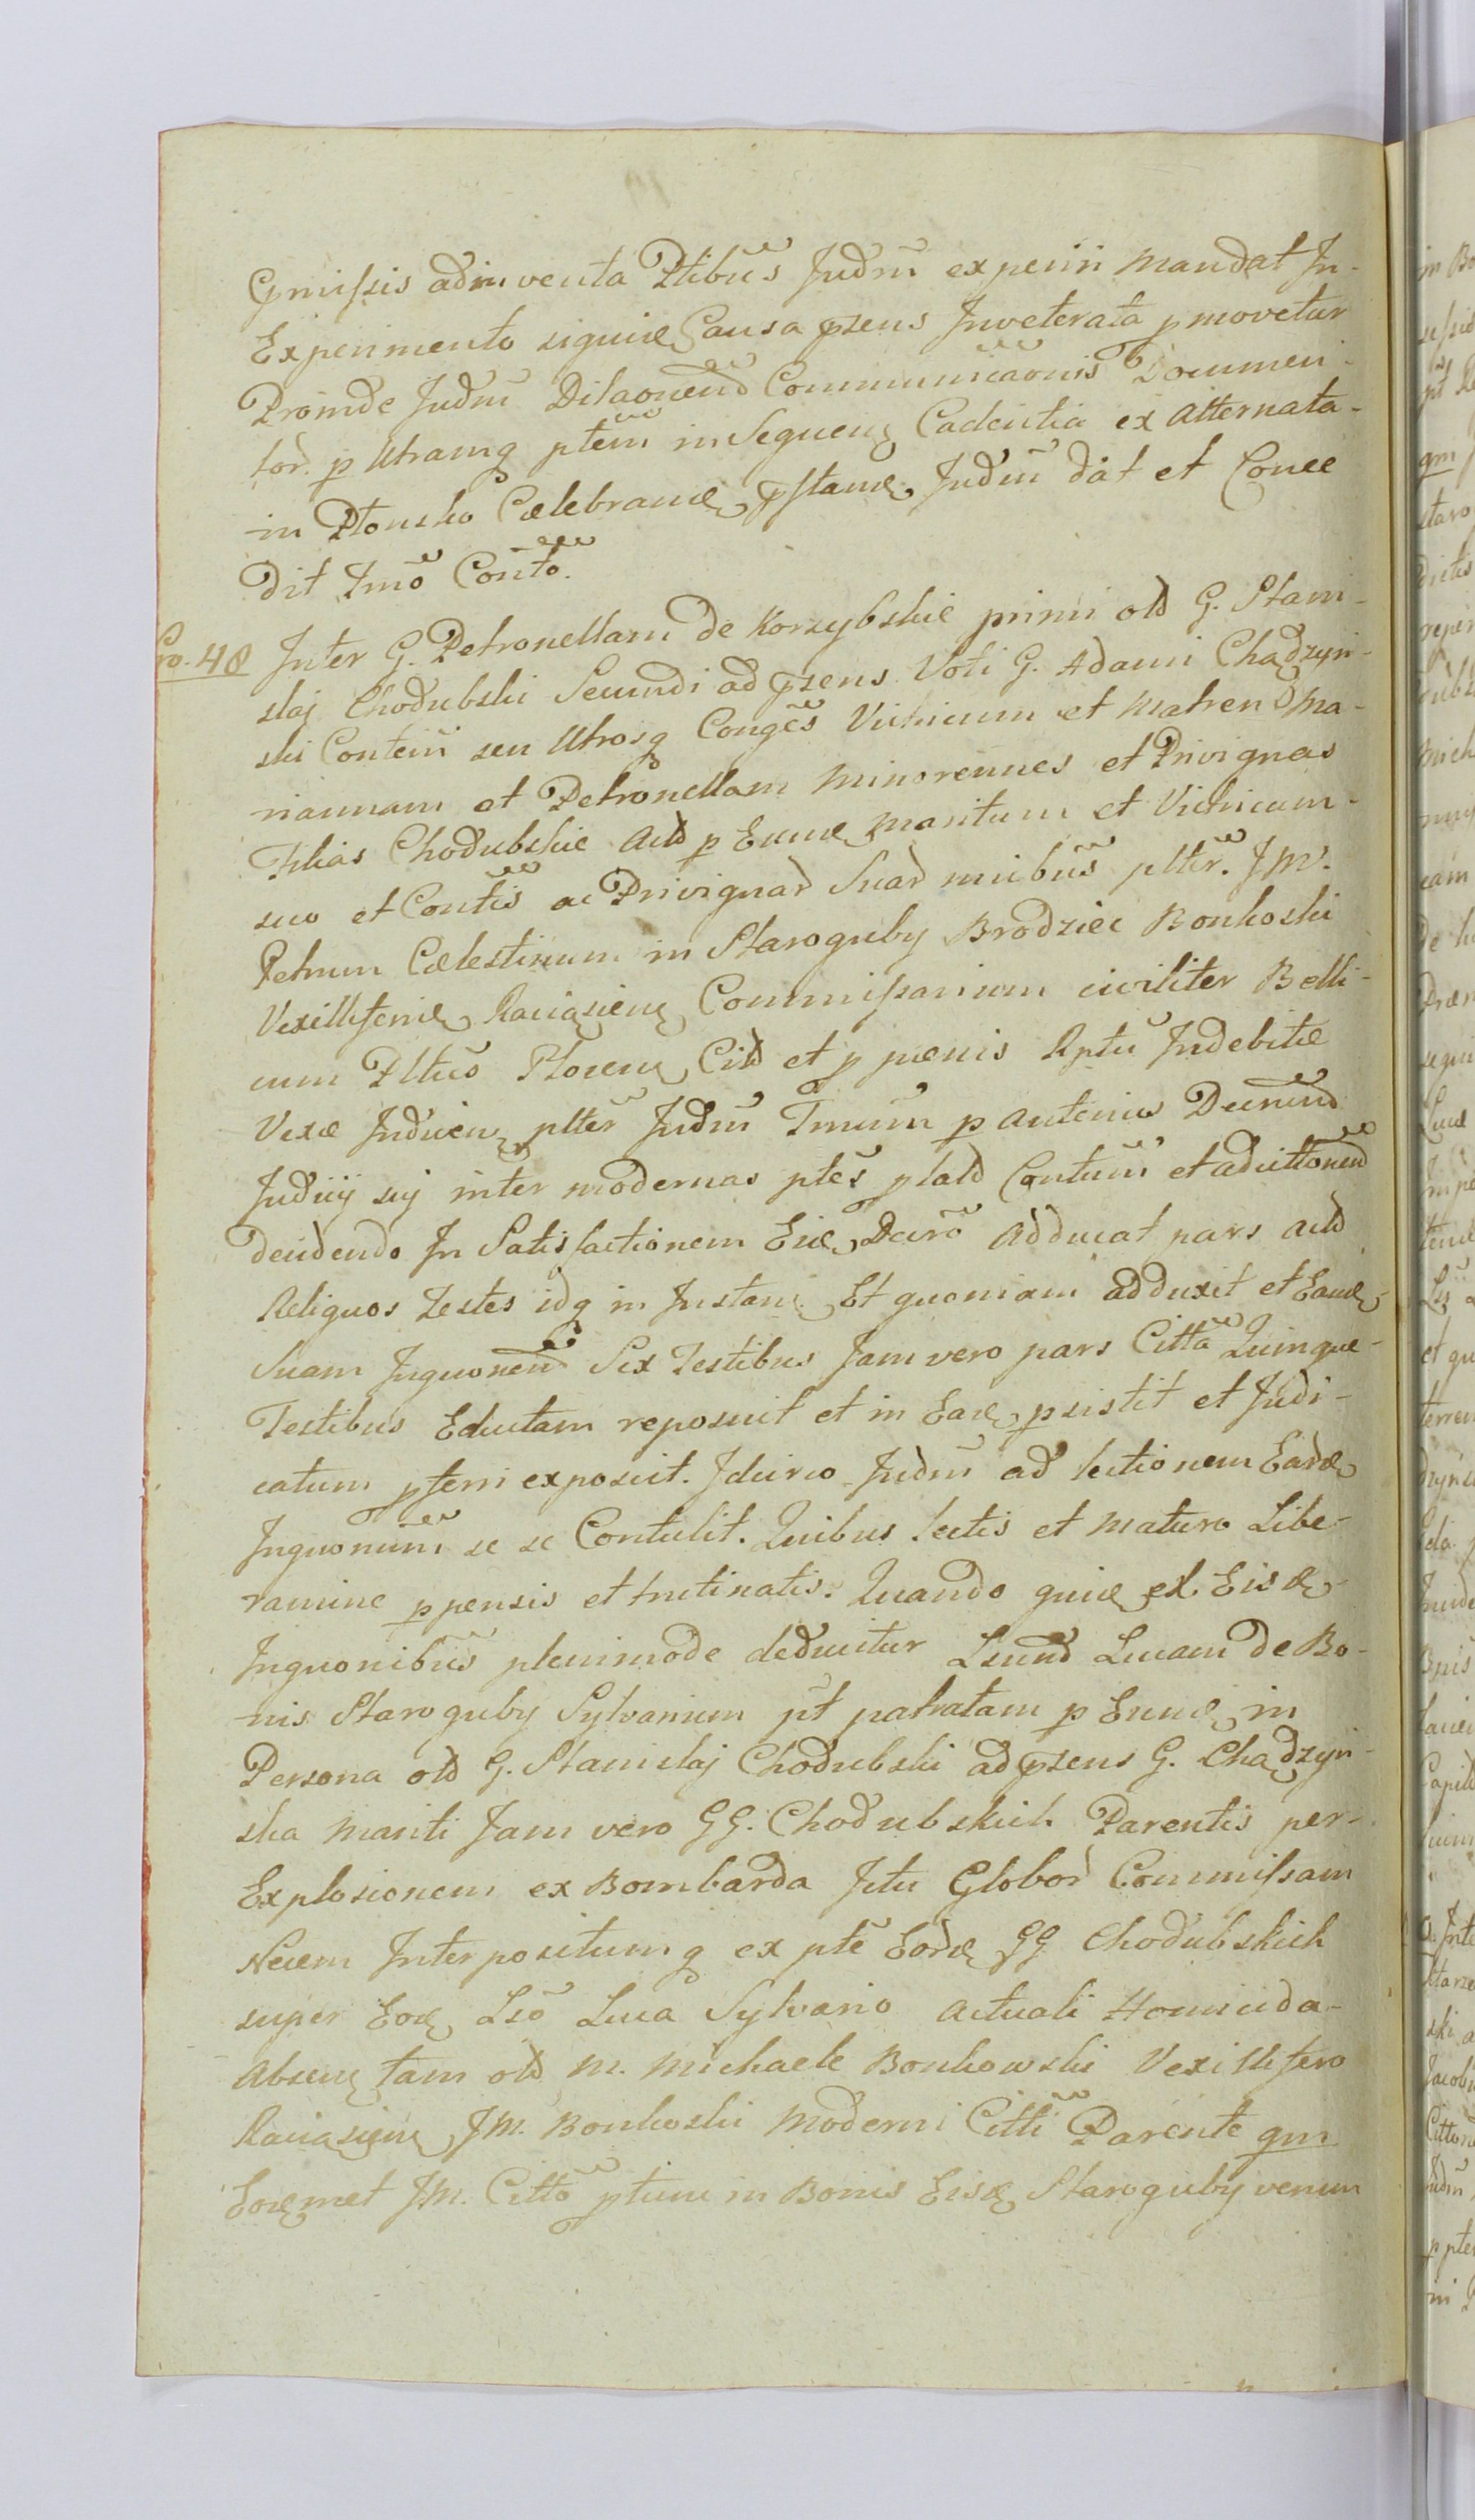 Cpmissis adinventa Ptibus Judm experiri Mandat In-
Experimento siquid Causa pzens Inveterata pmovetur
Proinde Judm Dilaonem Communicaonis Documen-
tor. p Utramq ptem in Sequen Cadentia ex Alternata-
in Płonsko Celebrand pstand Judm dat et Conce
Dit Tmo Conto.
Pro. 48 Inter G. Petronellam de Korzybskie primi old G. Stani-
slaj Chodubski Secundi ad pzens Voti G. Adami Chądzyn-
ski Contem seu Utrosq Conges Vitricum et Matren Ma-
riannam et Petronellam Minorennes et Privignas
Filias Chodubskie Actd p Eund Maritum et Vitricum-
suo et Contis ac Privignar Suar nnibus plter. JM.
Petrum Celestinum in Staroguby Brodziec Bonkoski
Vexilliferid Raciązien Commissarium civiliter Belli-
cum Pltus Plocen Citd et p penis Rptu Indebite
Vexe Inducen plter Judm Tmum p anterius Decrum
Judicij sij inter modernas ptes platd Contum et adcittonem
decidendo In Satisfactionem Eid Decro Adducat pars Actd
Reliquos Testes idq in Instan Et quoniam adduxit et Eand
Suam Inquonem Sex Testibus Jam vero pars Citta Quinque-
Testibus Eductam reposuit et in Ead psistit et Judi-
catum pferri exposcit. Idcirco Judm ad lectionem Eard
Inquonum se se Contulit. Quibus lectis et Maturo Libe-
ramine ppensis et trutinatis. Quando quid ex Eisd
Inquonibus plenimode deducitur Lsum Lucam de Bo-
nis Staroguby Sylvanum pt patratam p Eund in
Persona old G. Stanislaj Chodubski ad pzens G. Chądzyn-
ska Mariti Jam vero GG. Chodubskich Parentis per-
Explosionem ex Bombarda Ictu Globor Commissam
Necem Interpositumq ex pte Eord GG Chodubskich
super Eod Lso Luca Sylvano Actuali Homicida-
Absen tam old M. Michaele Bonkowski Vexillifero
Raciązien JM. Bonkoski Moderni Citti Parente qm
Eodmet JM. Citto ptum in Bonis Eisd Staroguby verum